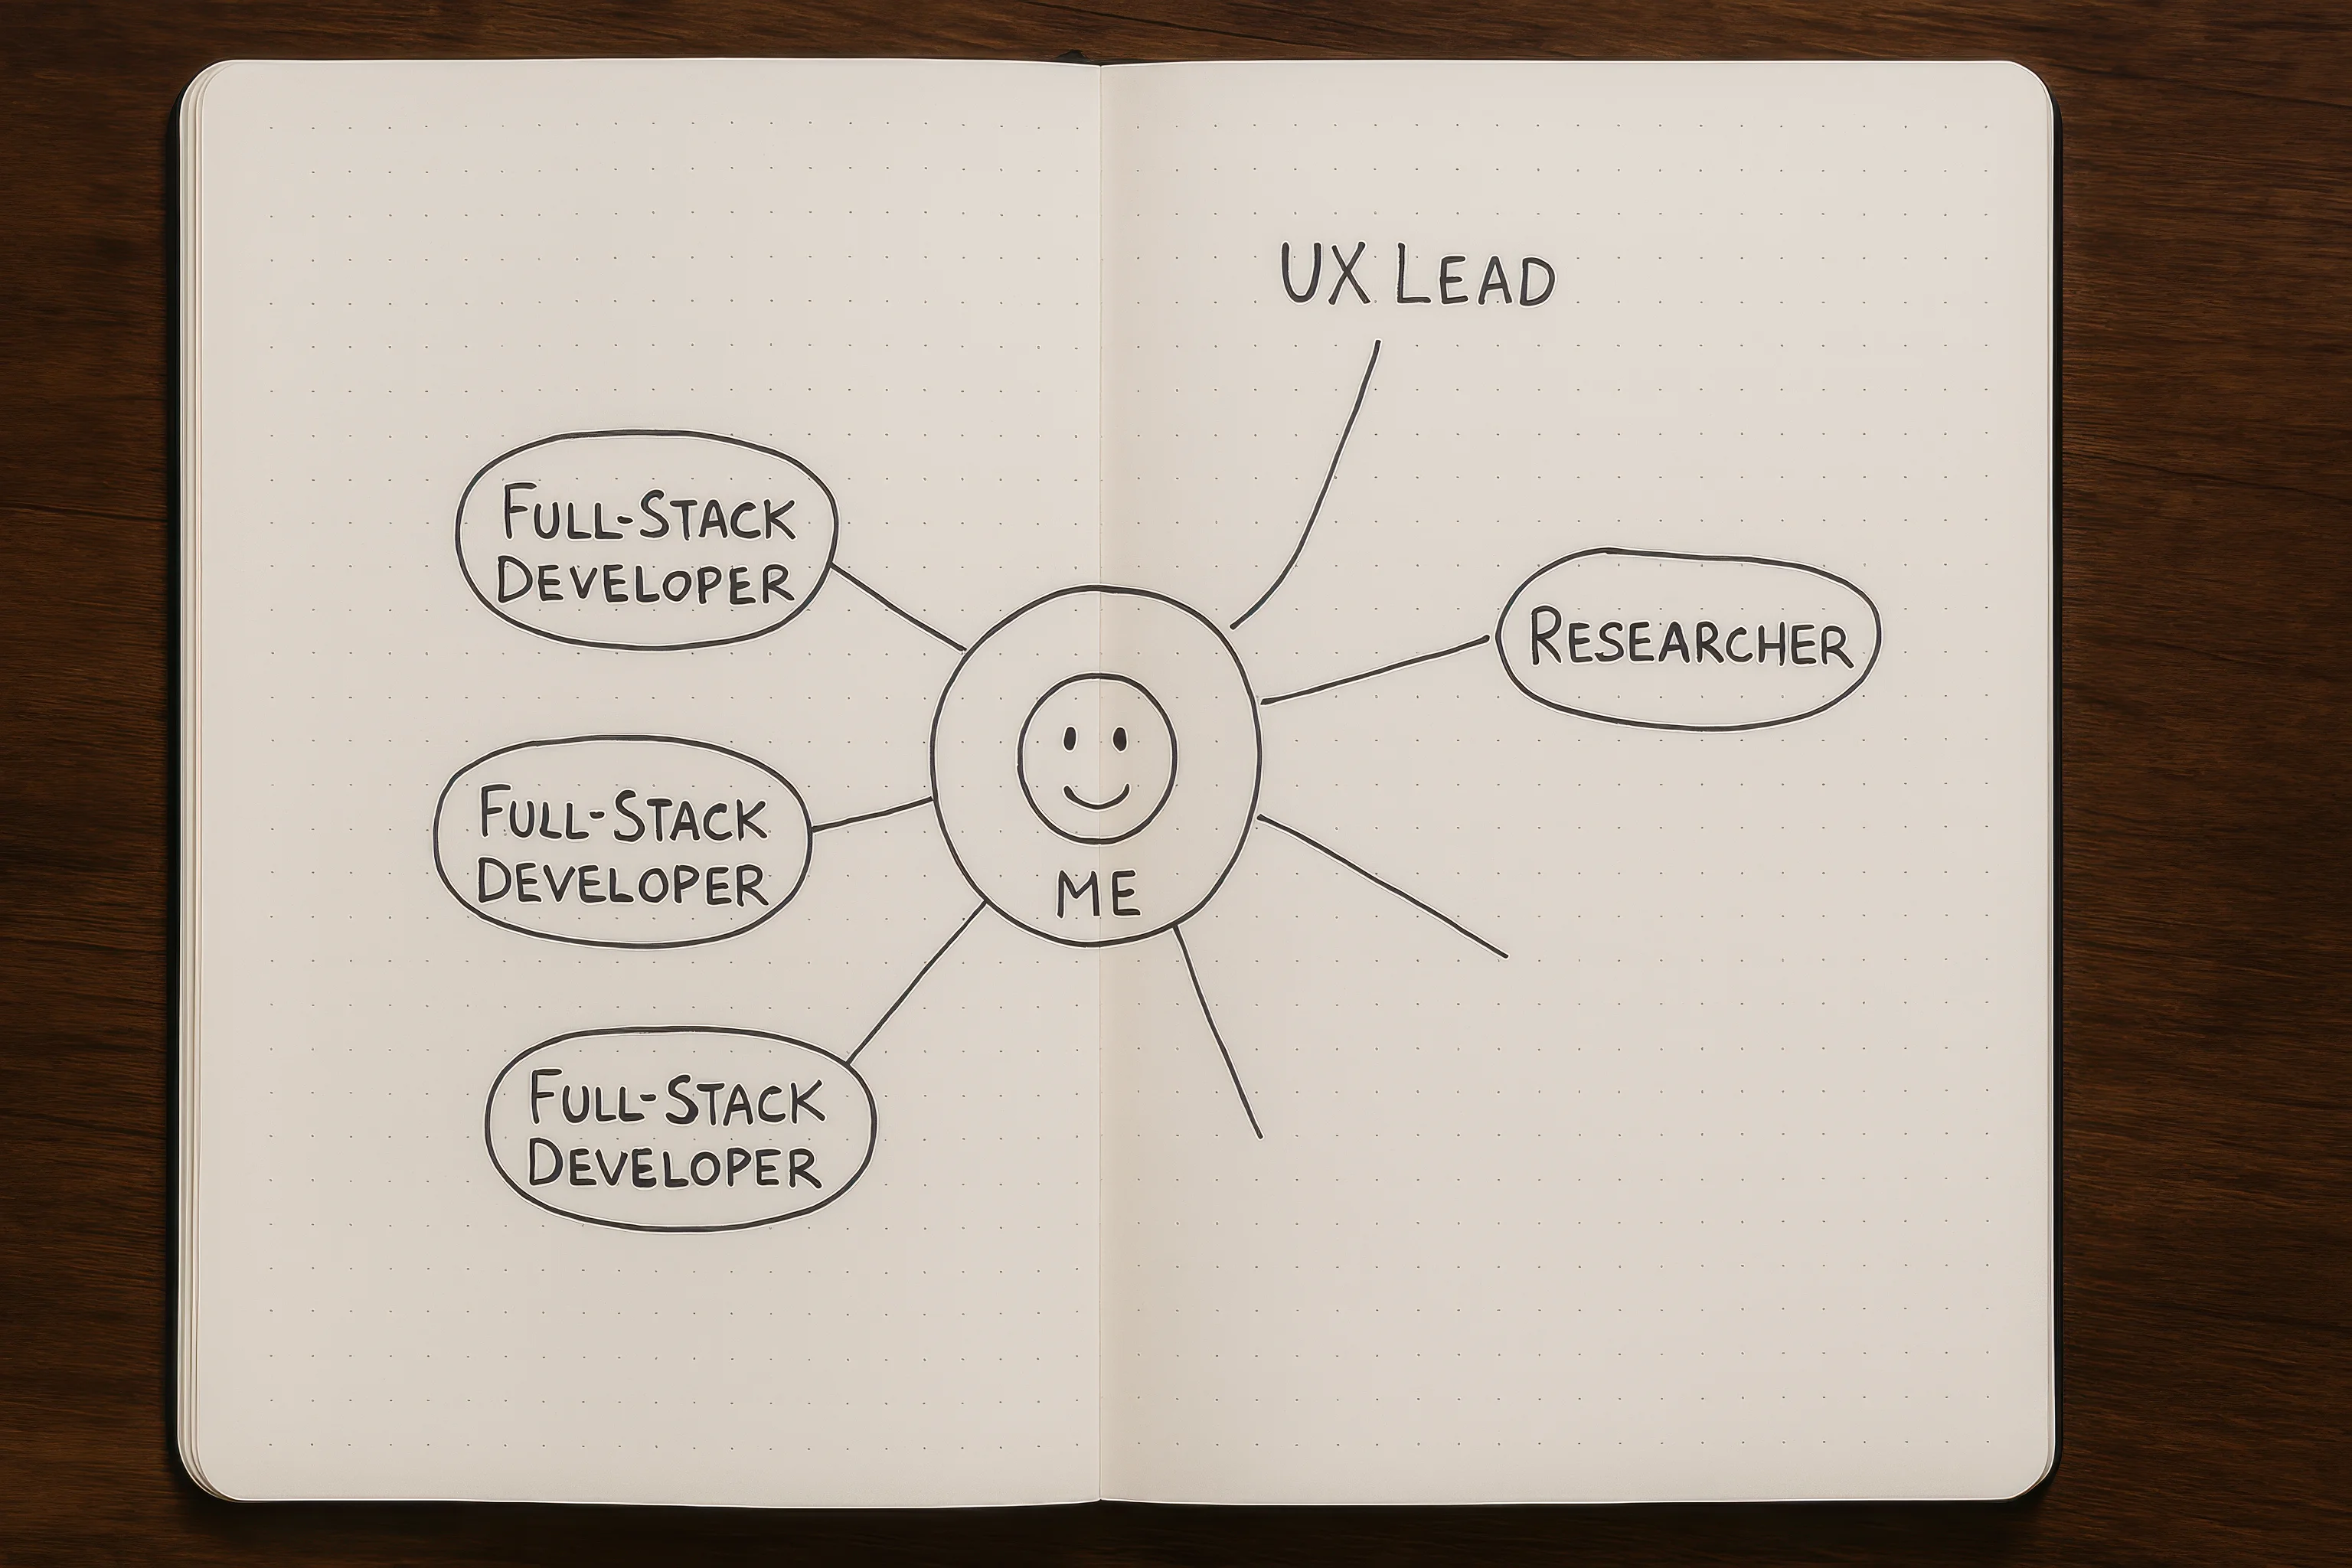 UX LEAD
FULL-STACK
DEVELOPER
RESEARCHER
FULL-STACK
DEVELOPER
ME
FULL-STACK
DEVELOPER